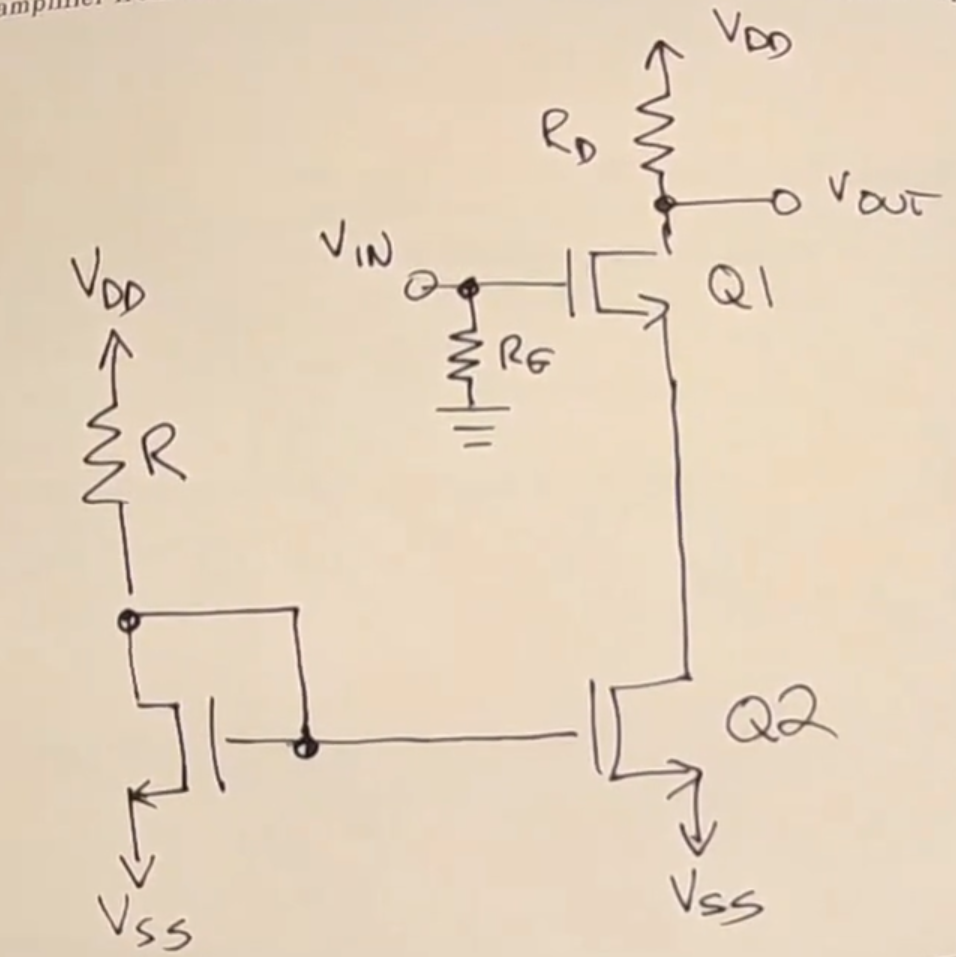 amplifier
VDD
RD
VOUT
VIN
Q1
RG
VDD
R
Q2
VSS
VSS